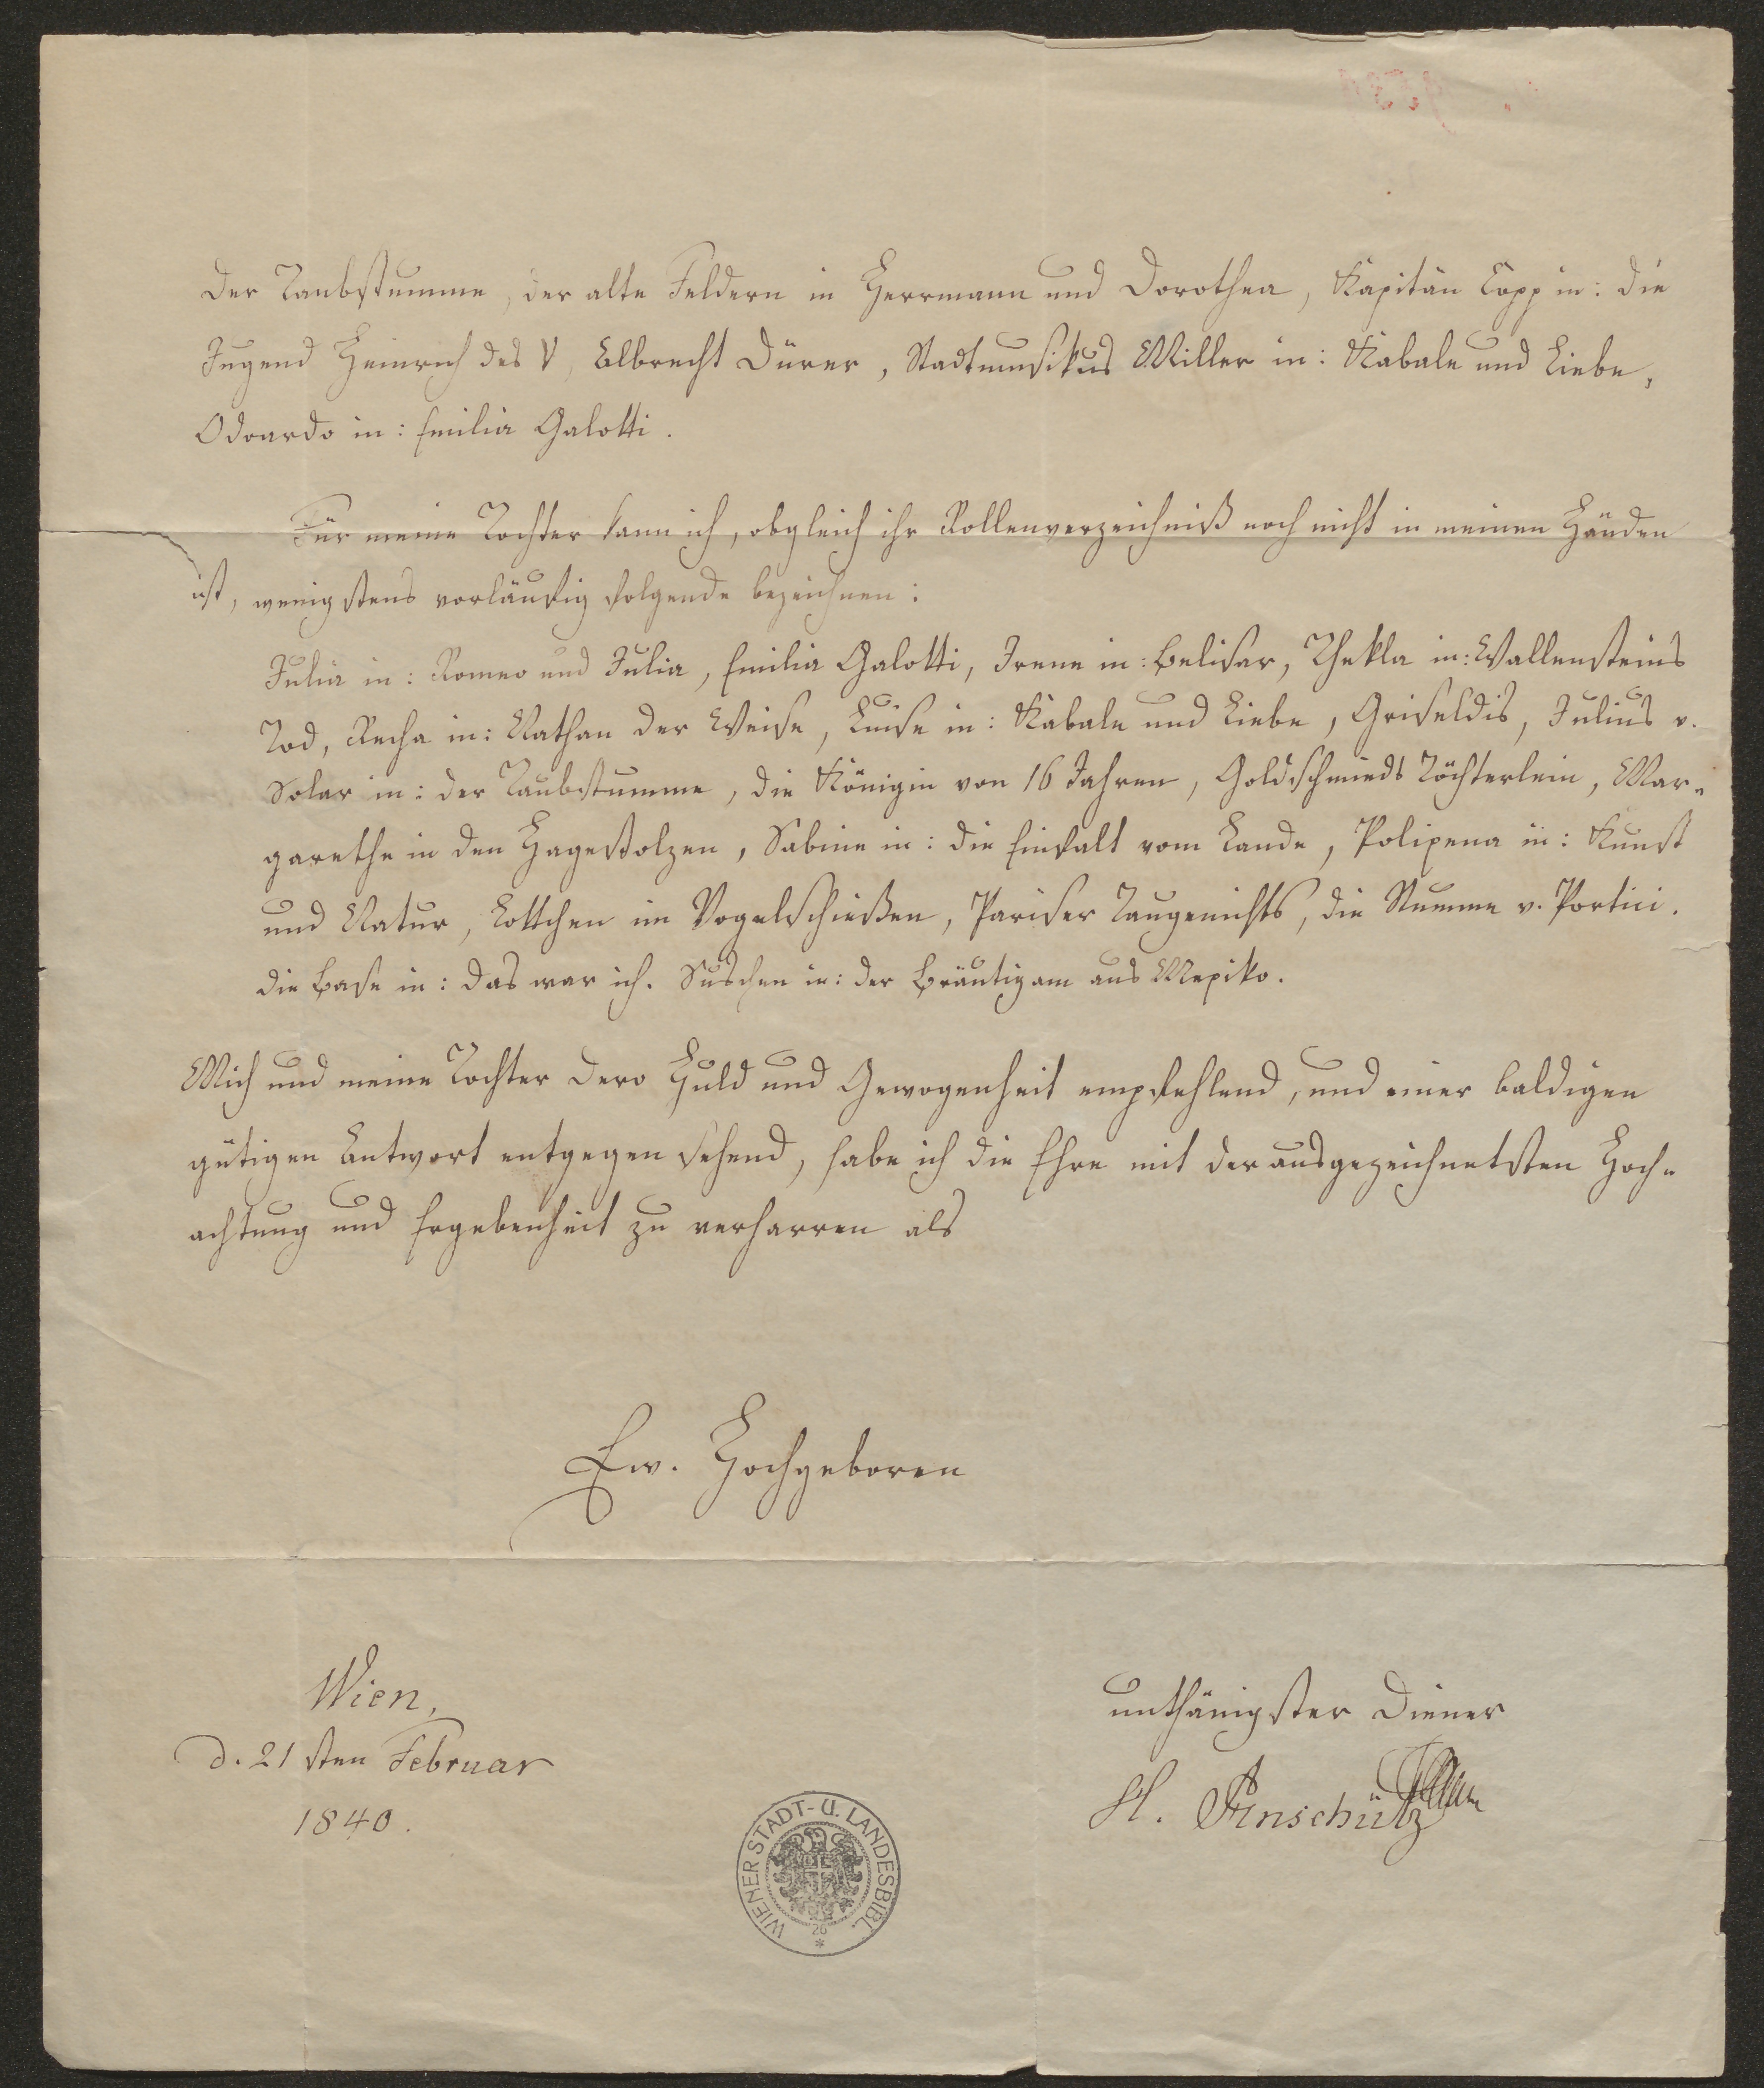 Der Taubstumme, der alte Feldern in Herrmann und Dorothea, Kapitän Copp in: die
Jugend Heinrich des V, Albrecht Dürer, Stadtmusikus Miller in: Kabale und Liebe,
Odoardo in: Emilia Galotti.
Für meine Tochter kann ich, obgleich ihr Rollenverzeichniß noch nicht in meinen Händen
ist, wenigstens vorläufig folgende bezeichnen:
Julia in: Romeo und Julia, Emilia Galotti, Irene in: Belisar, Thekla in: Wallensteins
Tod, Recha in: Nathan der Weise, Luise in: Kabale und Liebe, Griseldis, Julius v.
Solar in: der Taubstumme, die Königin von 16 Jahren, Goldschmieds Töchterlein, Mar-
garethe in den Hagestolzen, Sabine in: die Einfalt vom Lande, Polixena in: Kunst
und Natur, Lottchen im Vogelschießen, Pariser Taugenichts, die Stumme v. Portici.
die Base in: das war ich. Suschen in: der Bräutigam aus Mexiko.
Mich und meine Tochter dero Huld und Gewogenheit empfehlend, und einer baldigen
gütigen Antwort entgegen sehend, habe ich die Ehre mit der ausgezeichnetsten Hoch-
achtung und Ergebenheit zu verharren als
Ew. Hochgeboren
Wien,
d. 21 sten Februar
1840.
unthänigster Diener
H. Anschütz
WIENER STADT- U. LANDESBIBL.
26